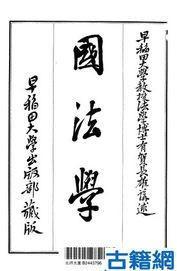 早稻田大學教授法學博士有賀長雄講述
國法學
早稻田大學出版部藏版
北師大圖 B2443796
古籍網